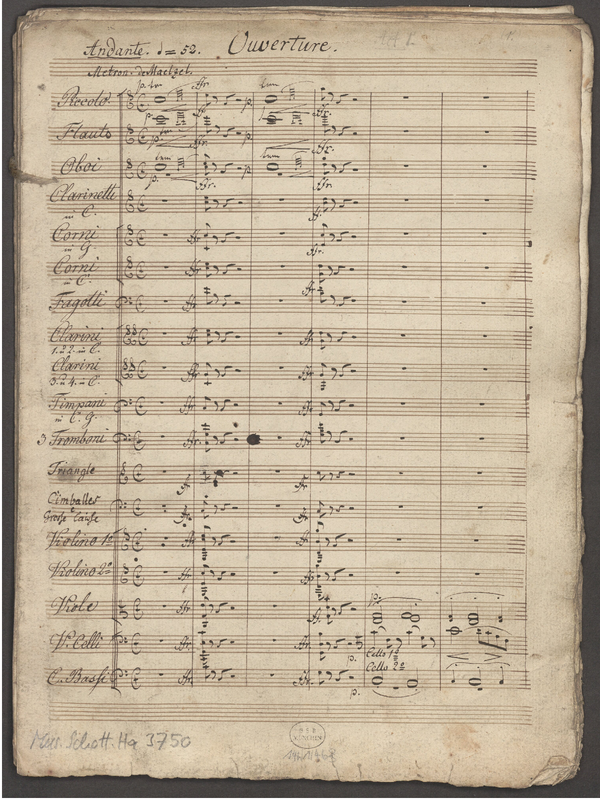 Andante. 𝅘𝅥 = 52. Ouverture.
Metron. de Maelzel.
Piccolo.
Flauto
Oboi
Clarinetti
in C.
Corni
in G.
Corni
in C.
Fagotti
Clarini
1. u 2. in C.
Clarini
3. u 4. in C.
Timpani
in C. G.
3 Tromboni
Triangle
Cimballes
e
Grosse Caisse
Violino 1º
Violino 2º
Viole
V. Celli
Cello 1º
Cello 2º
C. Bassi
Mus. Schott. Ha 3750